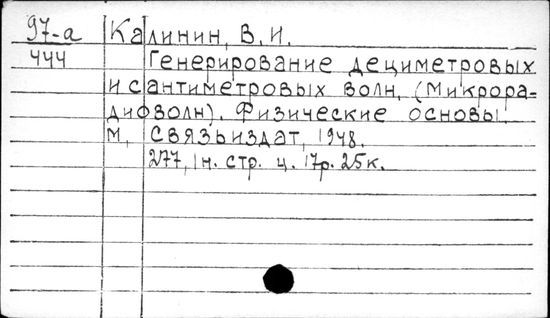 97-а Калинин, В.И.
444 Генерирование дециметровых
и сантиметровых волн. (Микрора-
диоволн). Физические основы.
М, Связьиздат, 1948.
277, 1н. стр. ц. 17р. 25к.